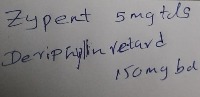 Zypent 5mg tds
Deriphyllin retard
150mg bd